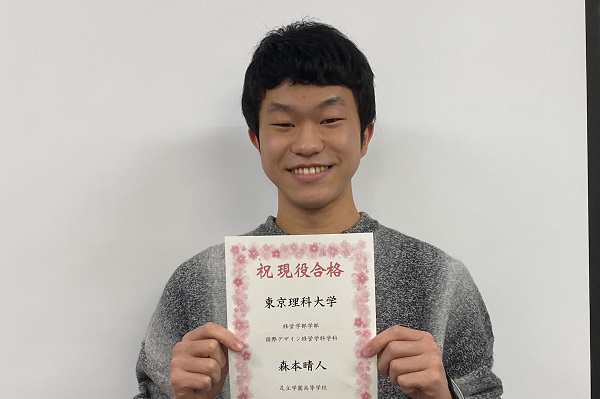 祝 現役合格
東京理科大学
経営学部学部
国際デザイン経営学科学科
森本晴人
足立学園高等学校